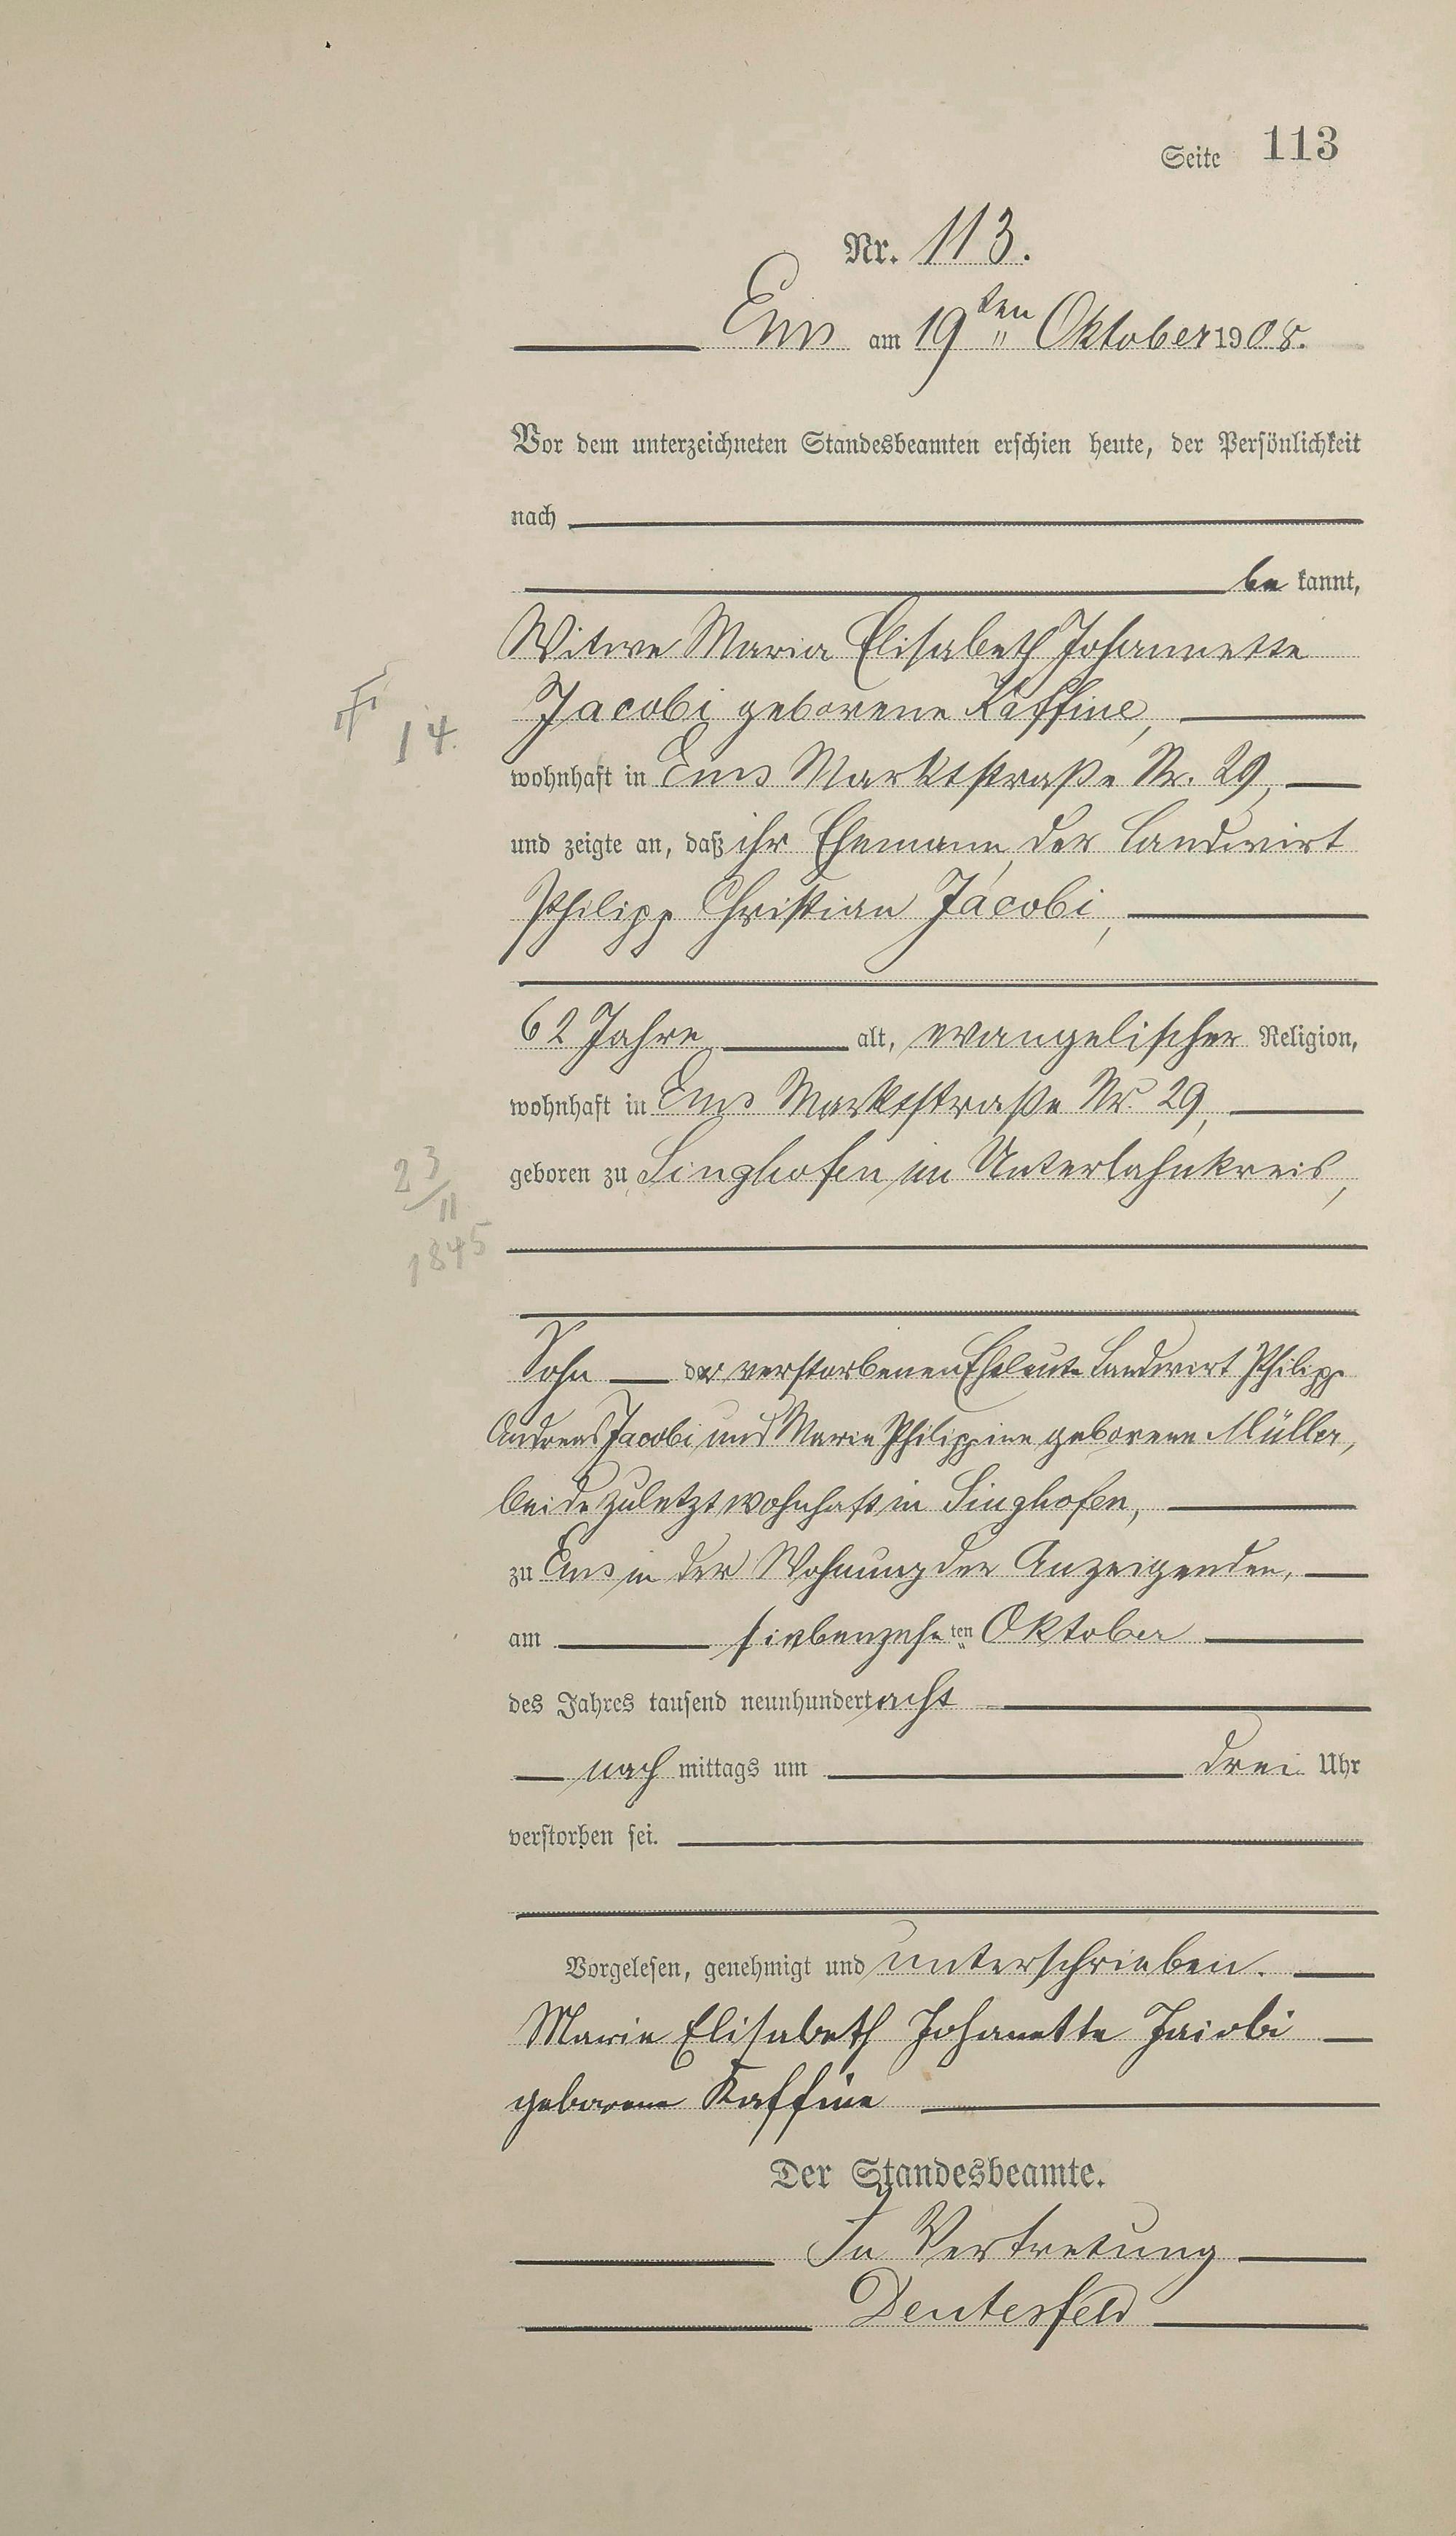 Seite 113
Nr. 113.
Ems am 19ten Oktober 1908.
Vor dem unterzeichneten Standesbeamten erschien heute, der Persönlichkeit
nach
be kannt,
Witwe Maria Elisabeth Johannette
Jacobi geborene Kaffine,
14.
wohnhaft in Ems Marktstraße Nr. 29,
und zeigte an, daß ihr Ehemann, der Landwirt
Philipp Christian Jacobi,
62 Jahre alt, evangelischer Religion,
wohnhaft in Ems Marktstraße Nr. 29,
geboren zu Singhofen im Unterlahnkreis,
23/11
1845
Sohn der verstorbenen Eheleute Landwirt Philipp
Andreas Jacobi und Marie Philippine geborene Müller,
beide zuletzt wohnhaft in Singhofen,
zu Ems in der Wohnung der Anzeigenden,
am siebenzehnten Oktober
des Jahres tausend neunhundert acht
nach mittags um drei Uhr
verstorben sei.
Vorgelesen, genehmigt und unterschrieben.
Marie Elisabeth Johanette Jacobi
geborene Kaffine
Der Standesbeamte.
In Vertretung
Deutesfeld